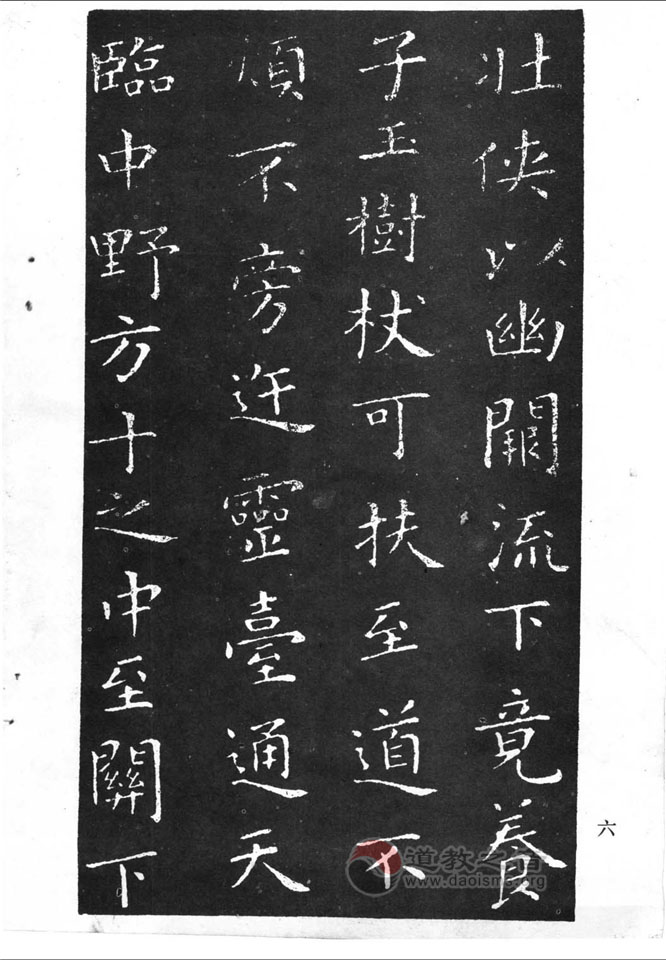 壯俠以幽闕流下竟養
子玉樹杖可扶至道不
煩不旁迕靈臺通天
臨中野方十之中至關下
六
道教之音
www.daoisms.org